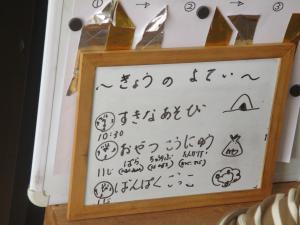 ① → ② → ③
〜きょうの よてい〜
すきなあそび
10:30
おやつ こうにゅう
ばら ちゅうりっぷ たんぽぽ
11じ
ばんぱくごっこ